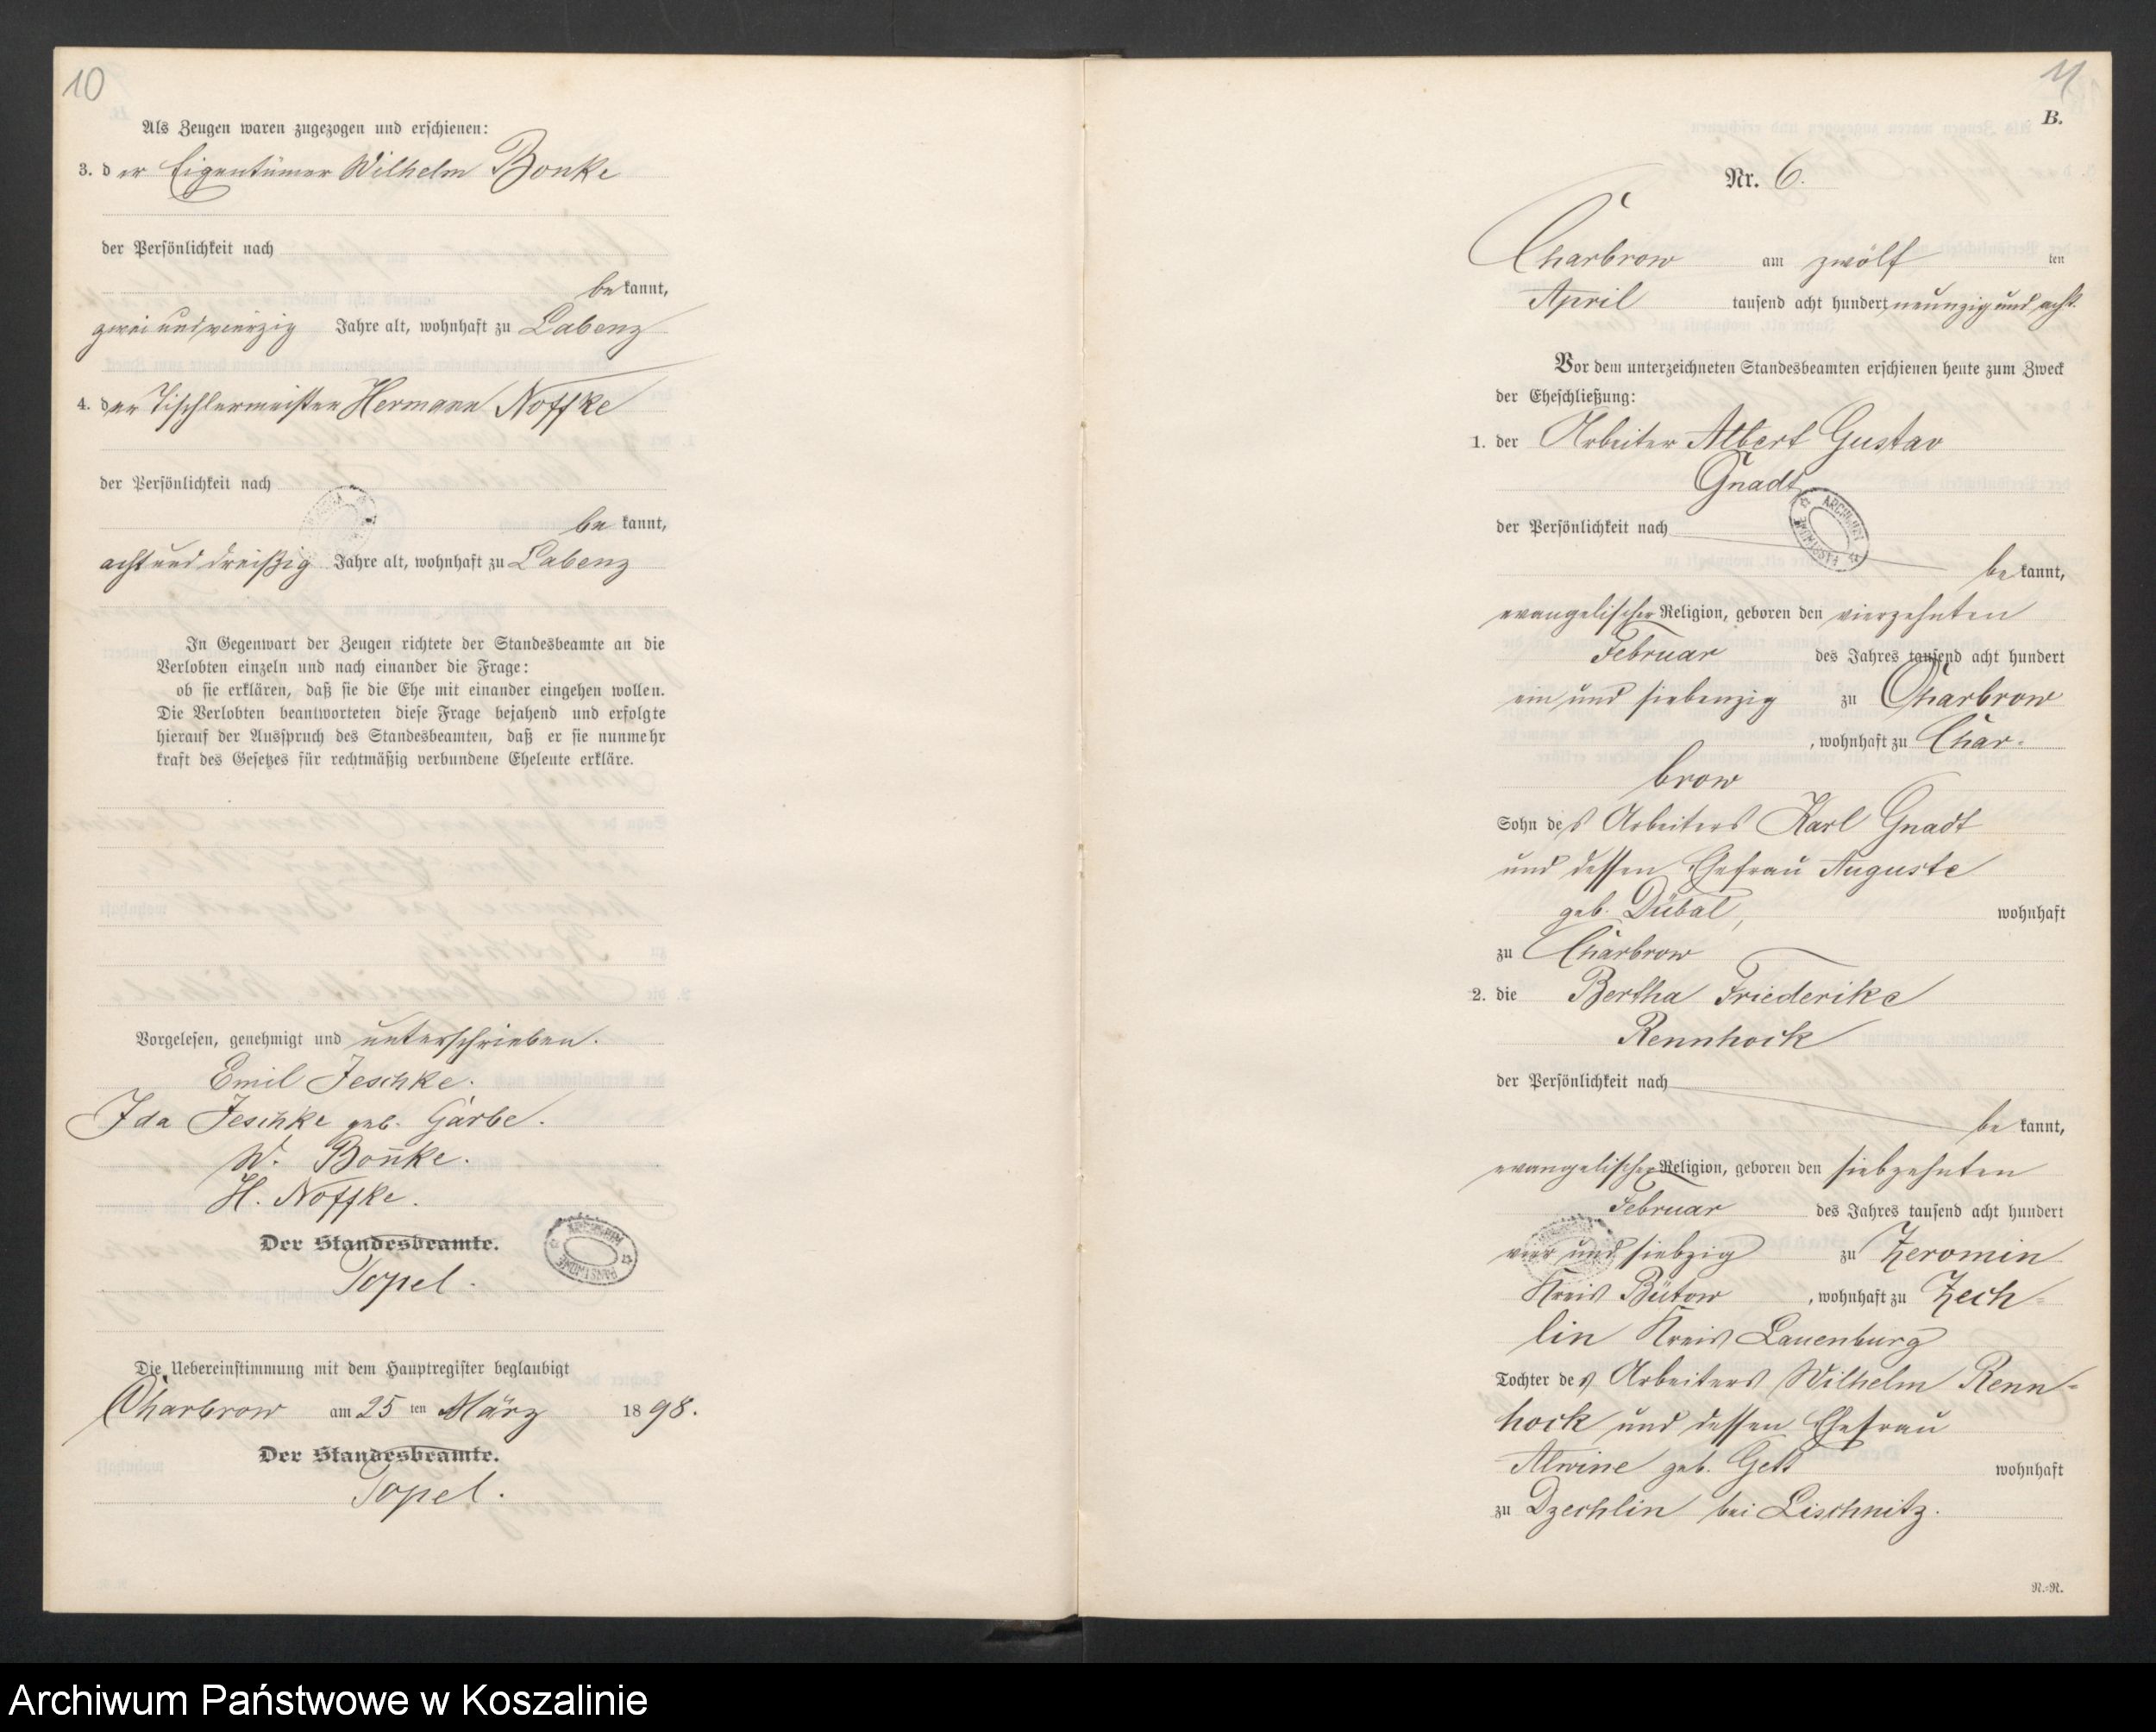 10
Als Zeugen waren zugezogen und erschienen:
3. der Eigentümer Wilhelm Bonke
der Persönlichkeit nach
be kannt,
zwei und vierzig Jahre alt, wohnhaft zu Labenz
4. der Tischlermeister Hermann Noffke
der Persönlichkeit nach
be kannt,
acht und dreißig Jahre alt, wohnhaft zu Labenz
In Gegenwart der Zeugen richtete der Standesbeamte an die
Verlobten einzeln und nach einander die Frage:
ob sie erklären, daß sie die Ehe mit einander eingehen wollen.
Die Verlobten beantworteten diese Frage bejahend und erfolgte
hierauf der Ausspruch des Standesbeamten, daß er sie nunmehr
kraft des Gesetzes für rechtmäßig verbundene Eheleute erkläre.
Vorgelesen, genehmigt und unterschrieben.
Emil Jeschke.
Ida Jeschke geb. Garbe.
W. Bonke.
H. Noffke.
Der Standesbeamte.
Topel.
Die Uebereinstimmung mit dem Hauptregister beglaubigt
Charbrow am 25 ten März 1898.
Der Standesbeamte.
Topel.
11
B.
Nr. 6.
Charbrow am zwölf ten
April tausend acht hundert neunzig und acht.
Vor dem unterzeichneten Standesbeamten erschienen heute zum Zweck
der Eheschließung:
1. der Arbeiter Albert Gustav
Gnadt
der Persönlichkeit nach
be kannt,
evangelischer Religion, geboren den vierzehnten
Februar des Jahres tausend acht hundert
ein und siebenzig zu Charbrow
, wohnhaft zu Char-
brow
Sohn des Arbeiters Karl Gnadt
und dessen Ehefrau Auguste
geb. Dübal, wohnhaft
zu Charbrow
2. die Bertha Friederike
Rennhock
der Persönlichkeit nach
be kannt,
evangelischer Religion, geboren den siebzehnten
Februar des Jahres tausend acht hundert
vier und siebzig zu Zeromin
Kreis Bütow, wohnhaft zu Zech-
lin Kreis Lauenburg
Tochter des Arbeiters Wilhelm Renn-
hock und dessen Ehefrau
Alwine geb. wohnhaft
zu Dzechlin bei Lischnitz.
R.-R.
Archiwum Państwowe w Koszalinie